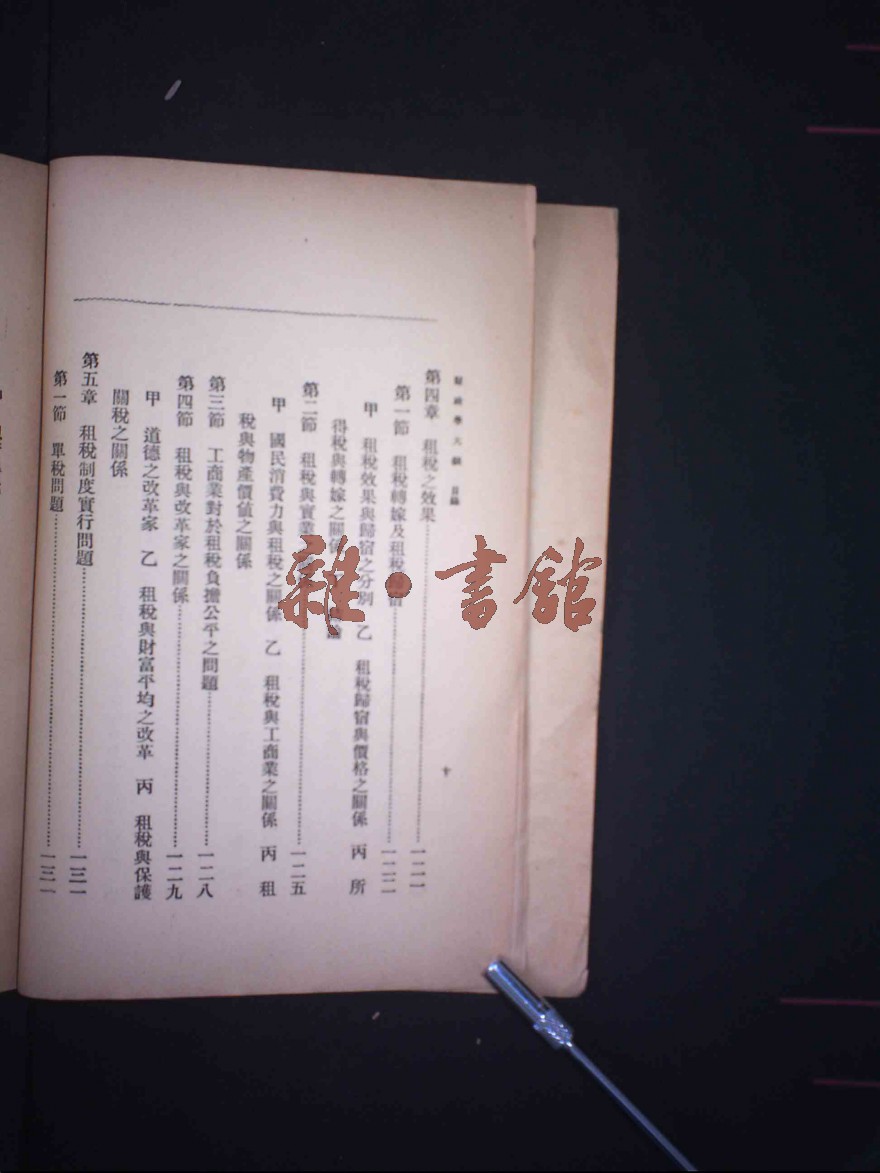 財政學大綱 目錄
十
第四章 租稅之效果……一二一
第一節 租稅轉嫁及租稅……一二二
甲 租稅效果與歸宿之分別 乙 租稅歸宿與價格之關係 丙 所
得稅與轉嫁之關係
第二節 租稅與實業……一二五
甲 國民消費力與租稅之關係 乙 租稅與工商業之關係 丙 租
稅與物產價値之關係
第三節 工商業對於租稅負擔公平之問題……一二八
第四節 租稅與改革家之關係……一二九
甲 道德之改革家 乙 租稅與財富平均之改革 丙 租稅與保護
關稅之關係
第五章 租稅制度實行問題……一三一
第一節 單稅問題……一三一
雜·書館